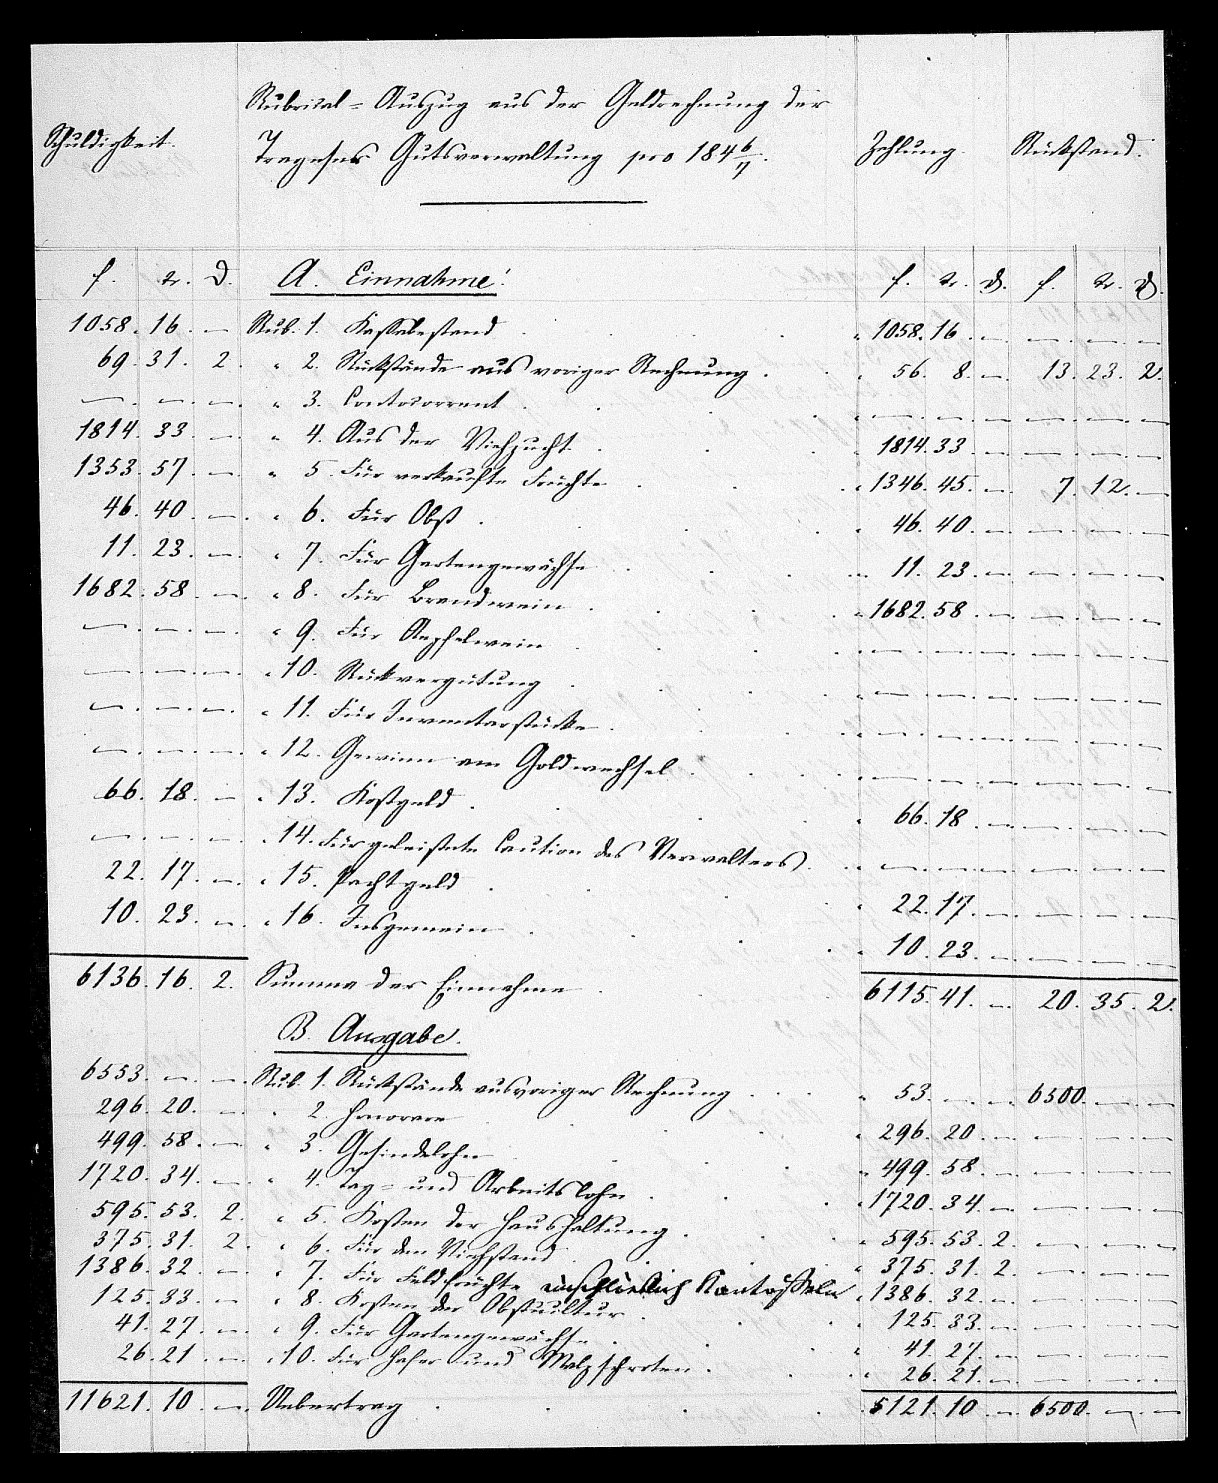 Rubrical = Auszug aus der Geldrechnung der
Schuldigkeit. Trageser Gutsverwaltung pro 184 6/7. Zahlung. Rückstand.
f. xr. d. A. Einnahme. f. xr. d. f. xr. d.
1058. 16. — Rub. 1. Kassabestand . 1058. 16. — — — —
69. 31. 2. " 2. Rückstände aus voriger Rechnung . 56. 8. — 13. 23. 2.
— — — " 3. Contocorrent . — — — — — —
1814. 33. — " 4. Aus der Viehzucht . 1814. 33. — — — —
1353. 57. — " 5. Für verkaufte Früchte . 1346. 45. — 7. 12. —
46. 40. — " 6. Für Obst . 46. 40. — — — —
11. 23. — " 7. Für Gartengewächse . 11. 23. — — — —
1682. 58. — " 8. Für Brandwein . 1682. 58. — — — —
— — — " 9. Für Aepfelwein . — — — — — —
— — — " 10. Rückvergütung . — — — — — —
— — — " 11. Für Inventarstücke . — — — — — —
— — — " 12. Gewinn am Goldwechsel . — — — — — —
66. 18. — " 13. Kostgeld . 66. 18. — — — —
— — — " 14. Für geleistete Caution des Verwalters . — — — — — —
22. 17. — " 15. Pachtgeld . 22. 17. — — — —
10. 23. — " 16. Insgemein . 10. 23. — — — —
6136. 16. 2. Summa der Einnahme . 6115. 41. — 20. 35. 2.
B. Ausgabe.
6553. — — Rub. 1. Rückstände aus voriger Rechnung . 53. — — 6500. — —
296. 20. — " 2. Honorare . 296. 20. — — — —
499. 58. — " 3. Gesindelohn . 499. 58. — — — —
1720. 34. — " 4. Tag = und Arbeitslohn . 1720. 34. — — — —
595. 53. 2. " 5. Kosten der Haushaltung . 595. 53. 2. — — —
375. 31. 2. " 6. Für den Viehstand . 375. 31. 2. — — —
1386. 32. — " 7. Für Feldfrüchte einschließlich Kartoffeln 1386. 32. — — — —
125. 33. — " 8. Kosten der Obstcultur . 125. 33. — — — —
41. 27. — " 9. Für Gartengewächse . 41. 27. — — — —
26. 21. — " 10. Für Hafer und Malzschroten . 26. 21. — — — —
11621. 10. — Uebertrag . 5121. 10. — 6500. — —